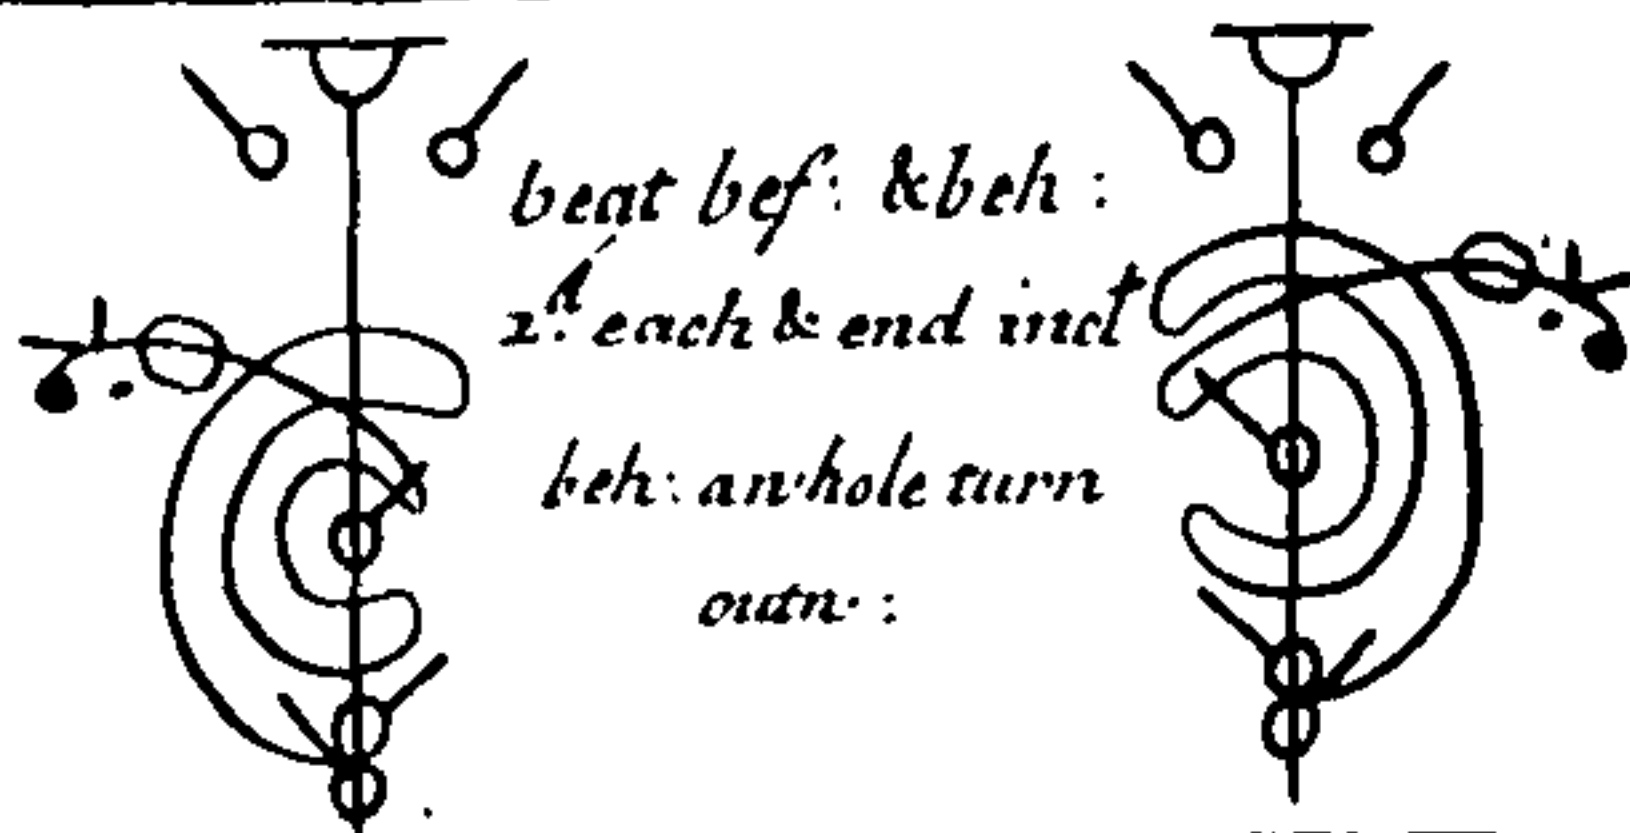 beat bef: & beh:
2.d each & end incl
beh: anhole turn
outn: